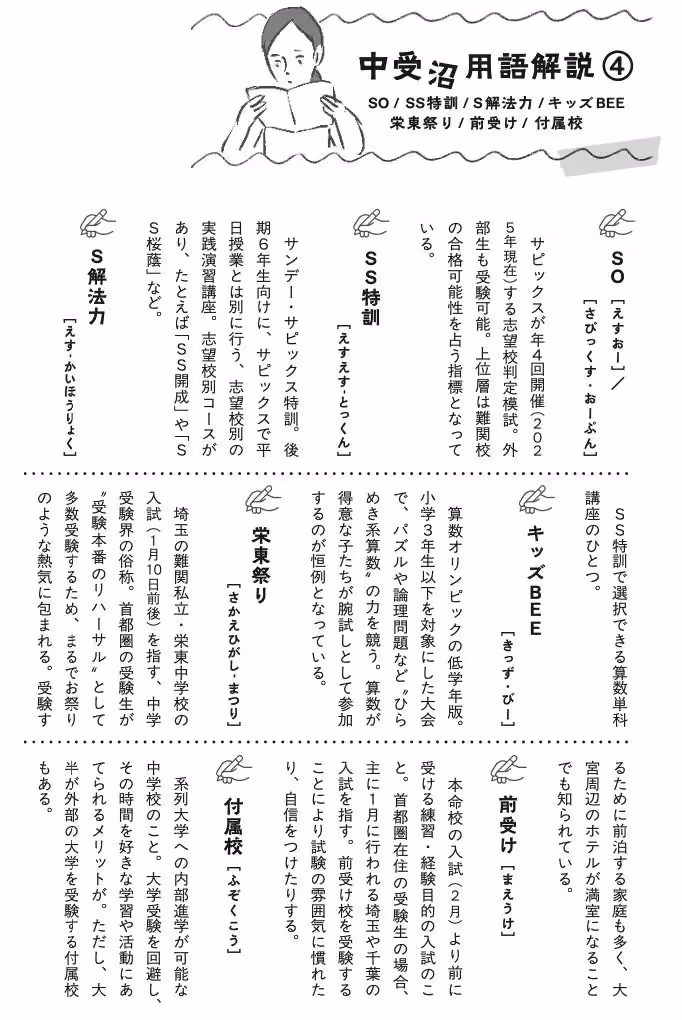 中受沼用語解説④
SO/SS特訓/S解法力/キッズBEE
栄東祭り/前受け/付属校
SO[えすおー]/
[さぴっくす・おーぷん]
サピックスが年4回開催(202
5年現在)する志望校判定模試。外
部生も受験可能。上位層は難関校
の合格可能性を占う指標となって
いる。
SS特訓
[えすえす-とっくん]
サンデー・サピックス特訓。後
期6年生向けに、サピックスで平
日授業とは別に行う、志望校別の
実践演習講座。志望校別コースが
あり、たとえば「SS開成」や「S
S桜蔭」など。
S解法力
[えす-かいほうりょく]
SS特訓で選択できる算数単科
講座のひとつ。
キッズBEE
[きっず・びー]
算数オリンピックの低学年版。
小学3年生以下を対象にした大会
で、パズルや論理問題など〝ひら
めき系算数〟の力を競う。算数が
得意な子たちが腕試しとして参加
するのが恒例となっている。
栄東祭り
[さかえひがし-まつり]
埼玉の難関私立・栄東中学校の
入試(1月10日前後)を指す、中学
受験界の俗称。首都圏の受験生が
〝受験本番のリハーサル〟として
多数受験するため、まるでお祭り
のような熱気に包まれる。受験す
るために前泊する家庭も多く、大
宮周辺のホテルが満室になること
でも知られている。
前受け[まえうけ]
本命校の入試(2月)より前に
受ける練習・経験目的の入試のこ
と。首都圏在住の受験生の場合、
主に1月に行われる埼玉や千葉の
入試を指す。前受け校を受験する
ことにより試験の雰囲気に慣れた
り、自信をつけたりする。
付属校[ふぞくこう]
系列大学への内部進学が可能な
中学校のこと。大学受験を回避し、
その時間を好きな学習や活動にあ
てられるメリットが。ただし、大
半が外部の大学を受験する付属校
もある。